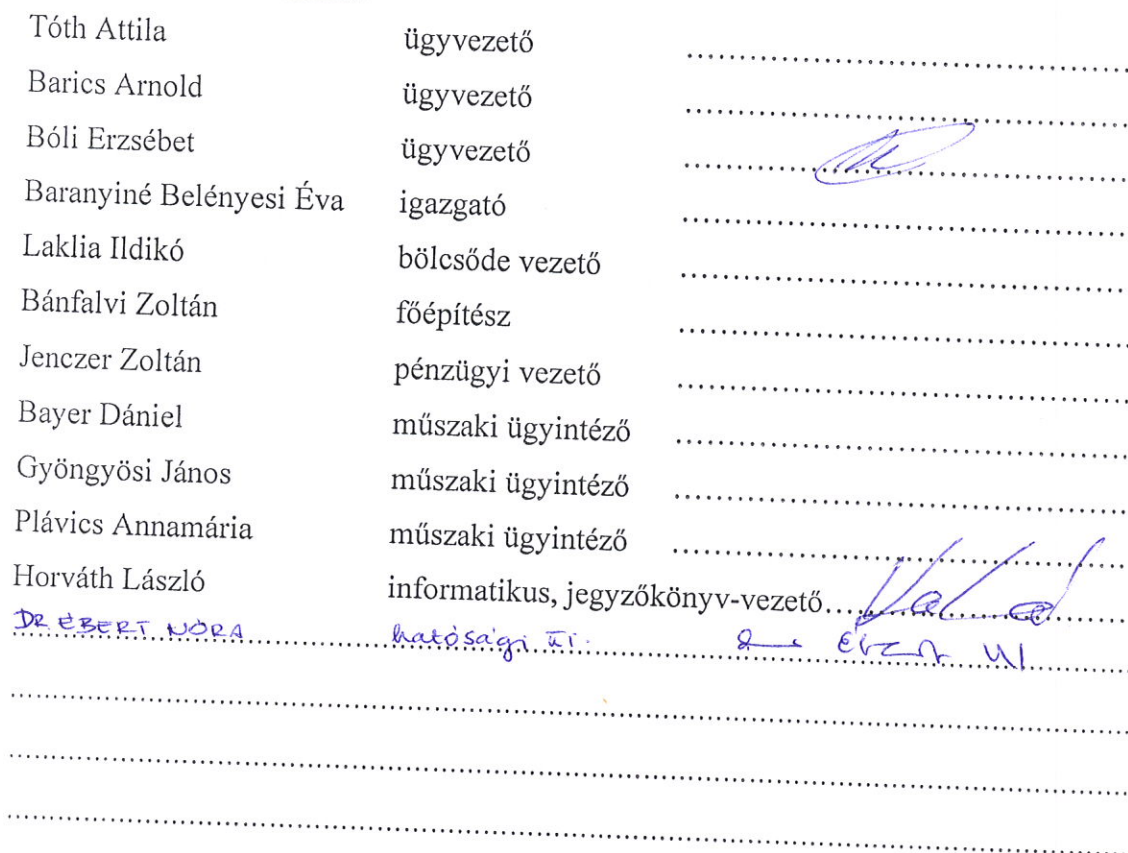 Tóth Attila ügyvezető ..............................
Barics Arnold ügyvezető ..............................
Bóli Erzsébet ügyvezető ..............................
Baranyiné Belényesi Éva igazgató ..............................
Laklia Ildikó bölcsőde vezető ..............................
Bánfalvi Zoltán főépítész ..............................
Jenczer Zoltán pénzügyi vezető ..............................
Bayer Dániel műszaki ügyintéző ..............................
Gyöngyösi János műszaki ügyintéző ..............................
Plávics Annamária műszaki ügyintéző ..............................
Horváth László informatikus, jegyzőkönyv-vezető ..............................
DR EBERT NÓRA hatósági üi.